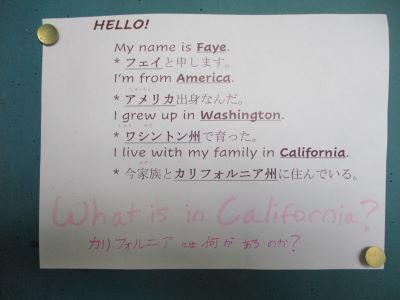 HELLO!
My name is Faye.
* フェイと申します。
I'm from America.
* アメリカ出身なんだ。
I grew up in Washington.
* ワシントン州で育った。
I live with my family in California.
* 今家族とカリフォルニア州に住んでいる。
What is in California?
カリフォルニアには何があるのか?